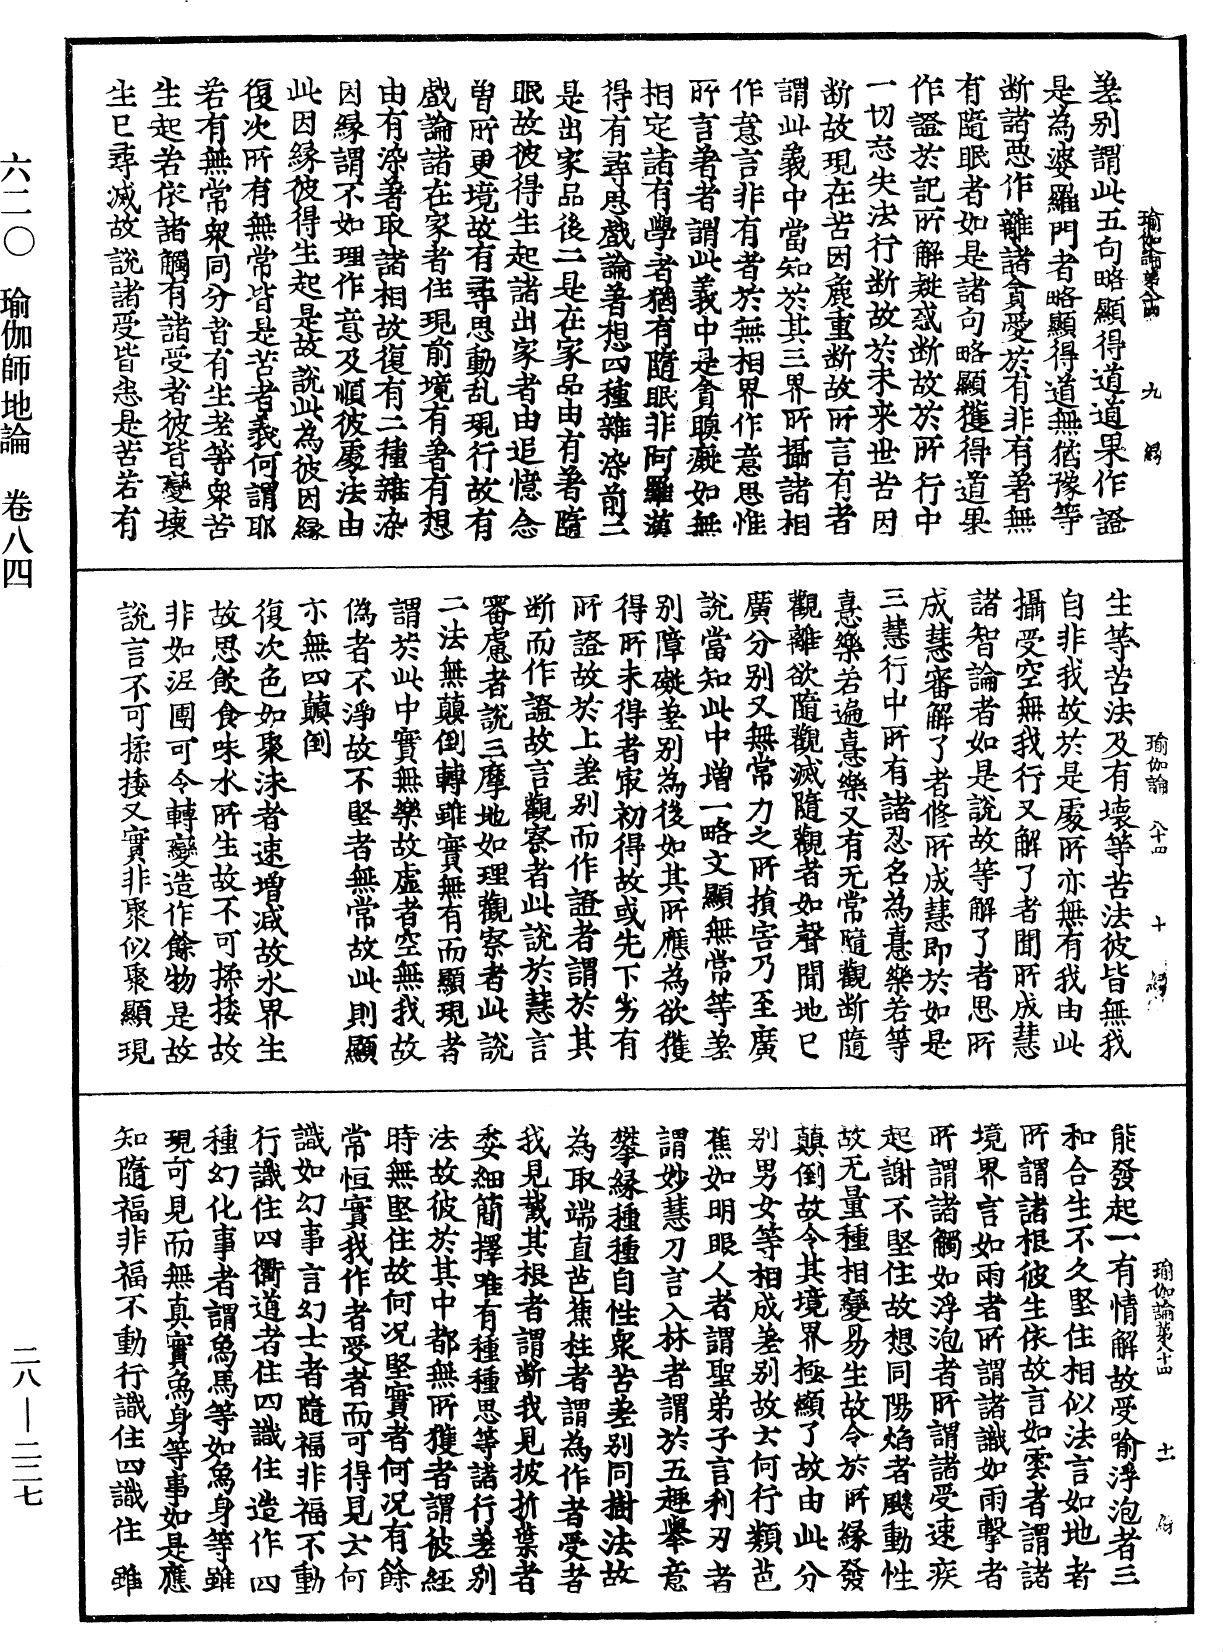 瑜伽論第八十四 九
差别謂此五句略顯得道道果作證
是為婆羅門者略顯得道無猶豫等
斷諸惡作離諸貪愛於有非有者無
有隨眠者如是諸句略顯獲得道果
作證於記所解疑惑斷故於所行中
一切忘失法行斷故於未来世苦因
斷故現在苦因麁重斷故所言有者
謂此義中當知於其三界所攝諸相
作意言非有者於無相界作意思惟
所言著者謂此義中是貪瞋癡如無
相定諸有學者猶有隨眠非阿羅漢
得有尋思戲論著想四種雜染前二
是出家品後二是在家品由有著隨
眠故彼得生起諸出家者由追憶念
曾所更境故有尋思動乱現行故有
戲論諸在家者住現前境有著有想
由有染著取諸相故復有二種雜染
因緣謂不如理作意及順彼處法由
此因緣彼得生起是故說此為彼因緣
復次所有無常皆是苦者義何謂耶
若有無常衆同分者有生老等衆苦
生起若依諸觸有諸受者彼皆變壞
生已尋滅故說諸受皆悉是苦若有
瑜伽論 八十四 十
生等苦法及有壞等苦法彼皆無我
自非我故於是處所亦無有我由此
攝受空無我行又解了者聞所成慧
諸智論者如是說故等解了者思所
成慧審解了者修所成慧即於如是
三慧行中所有諸忍名為意樂若等
意樂若遍意樂又有无常隨觀斷隨
觀離欲隨觀滅隨觀者如聲聞地已
廣分别又無常力之所損害乃至廣
說當知此中增一略文顯無常等差
别障礙差别為後如其所應為欲獲
得所未得者㝡初得故或先下劣有
所證故於上差别而作證者謂於其
断而作證故言觀察者此說於慧言
審慮者說三摩地如理觀察者此說
二法無顛倒轉雖實無有而顯現者
謂於此中實無樂故虛者空無我故
偽者不淨故不堅者無常故此則顯
亦無四顛倒
復次色如聚沫者速增減故水界生
故思飲食味水所生故不可揉捼故
非如泥團可令轉變造作餘物是故
說言不可揉捼又實非聚似聚顯現
瑜伽論第八十四 十一
能發起一有情解故受喻浮泡者三
和合生不久堅住相似法言如地者
所謂諸根彼生依故言如雲者謂諸
境界言如雨者所謂諸識如雨擊者
所謂諸觸如浮泡者所謂諸受速疾
起謝不堅住故想同陽焰者飈動性
故无量種相變易生故令於所緣發
顛倒故令其境界極顯了故由此分
别男女等相成差别故云何行類芭
蕉如明眼人者謂聖弟子言利刃者
謂妙慧刀言入林者謂於五趣舉意
攀緣種種自性衆苦差别同樹法故
為取端直芭蕉柱者謂為作者受者
我見截其根者謂断我見披折葉者
委細簡擇唯有種種思等諸行差别
法故彼於其中都無所獲者謂彼經
時無堅住故何況堅實者何況有餘
常恒實我作者受者而可得見云何
識如幻事言幻士者隨福非福不動
行識住四衢道者住四識住造作四
種幻化事者謂象馬等如象身等雖
現可見而無真實象身等事如是應
知隨福非福不動行識住四識住 雖
六二〇 瑜伽師地論 卷八四
二八—二二七